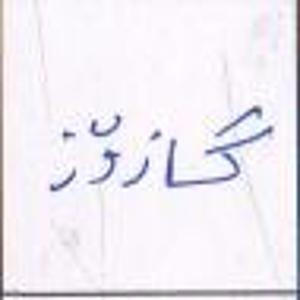 گازۆز